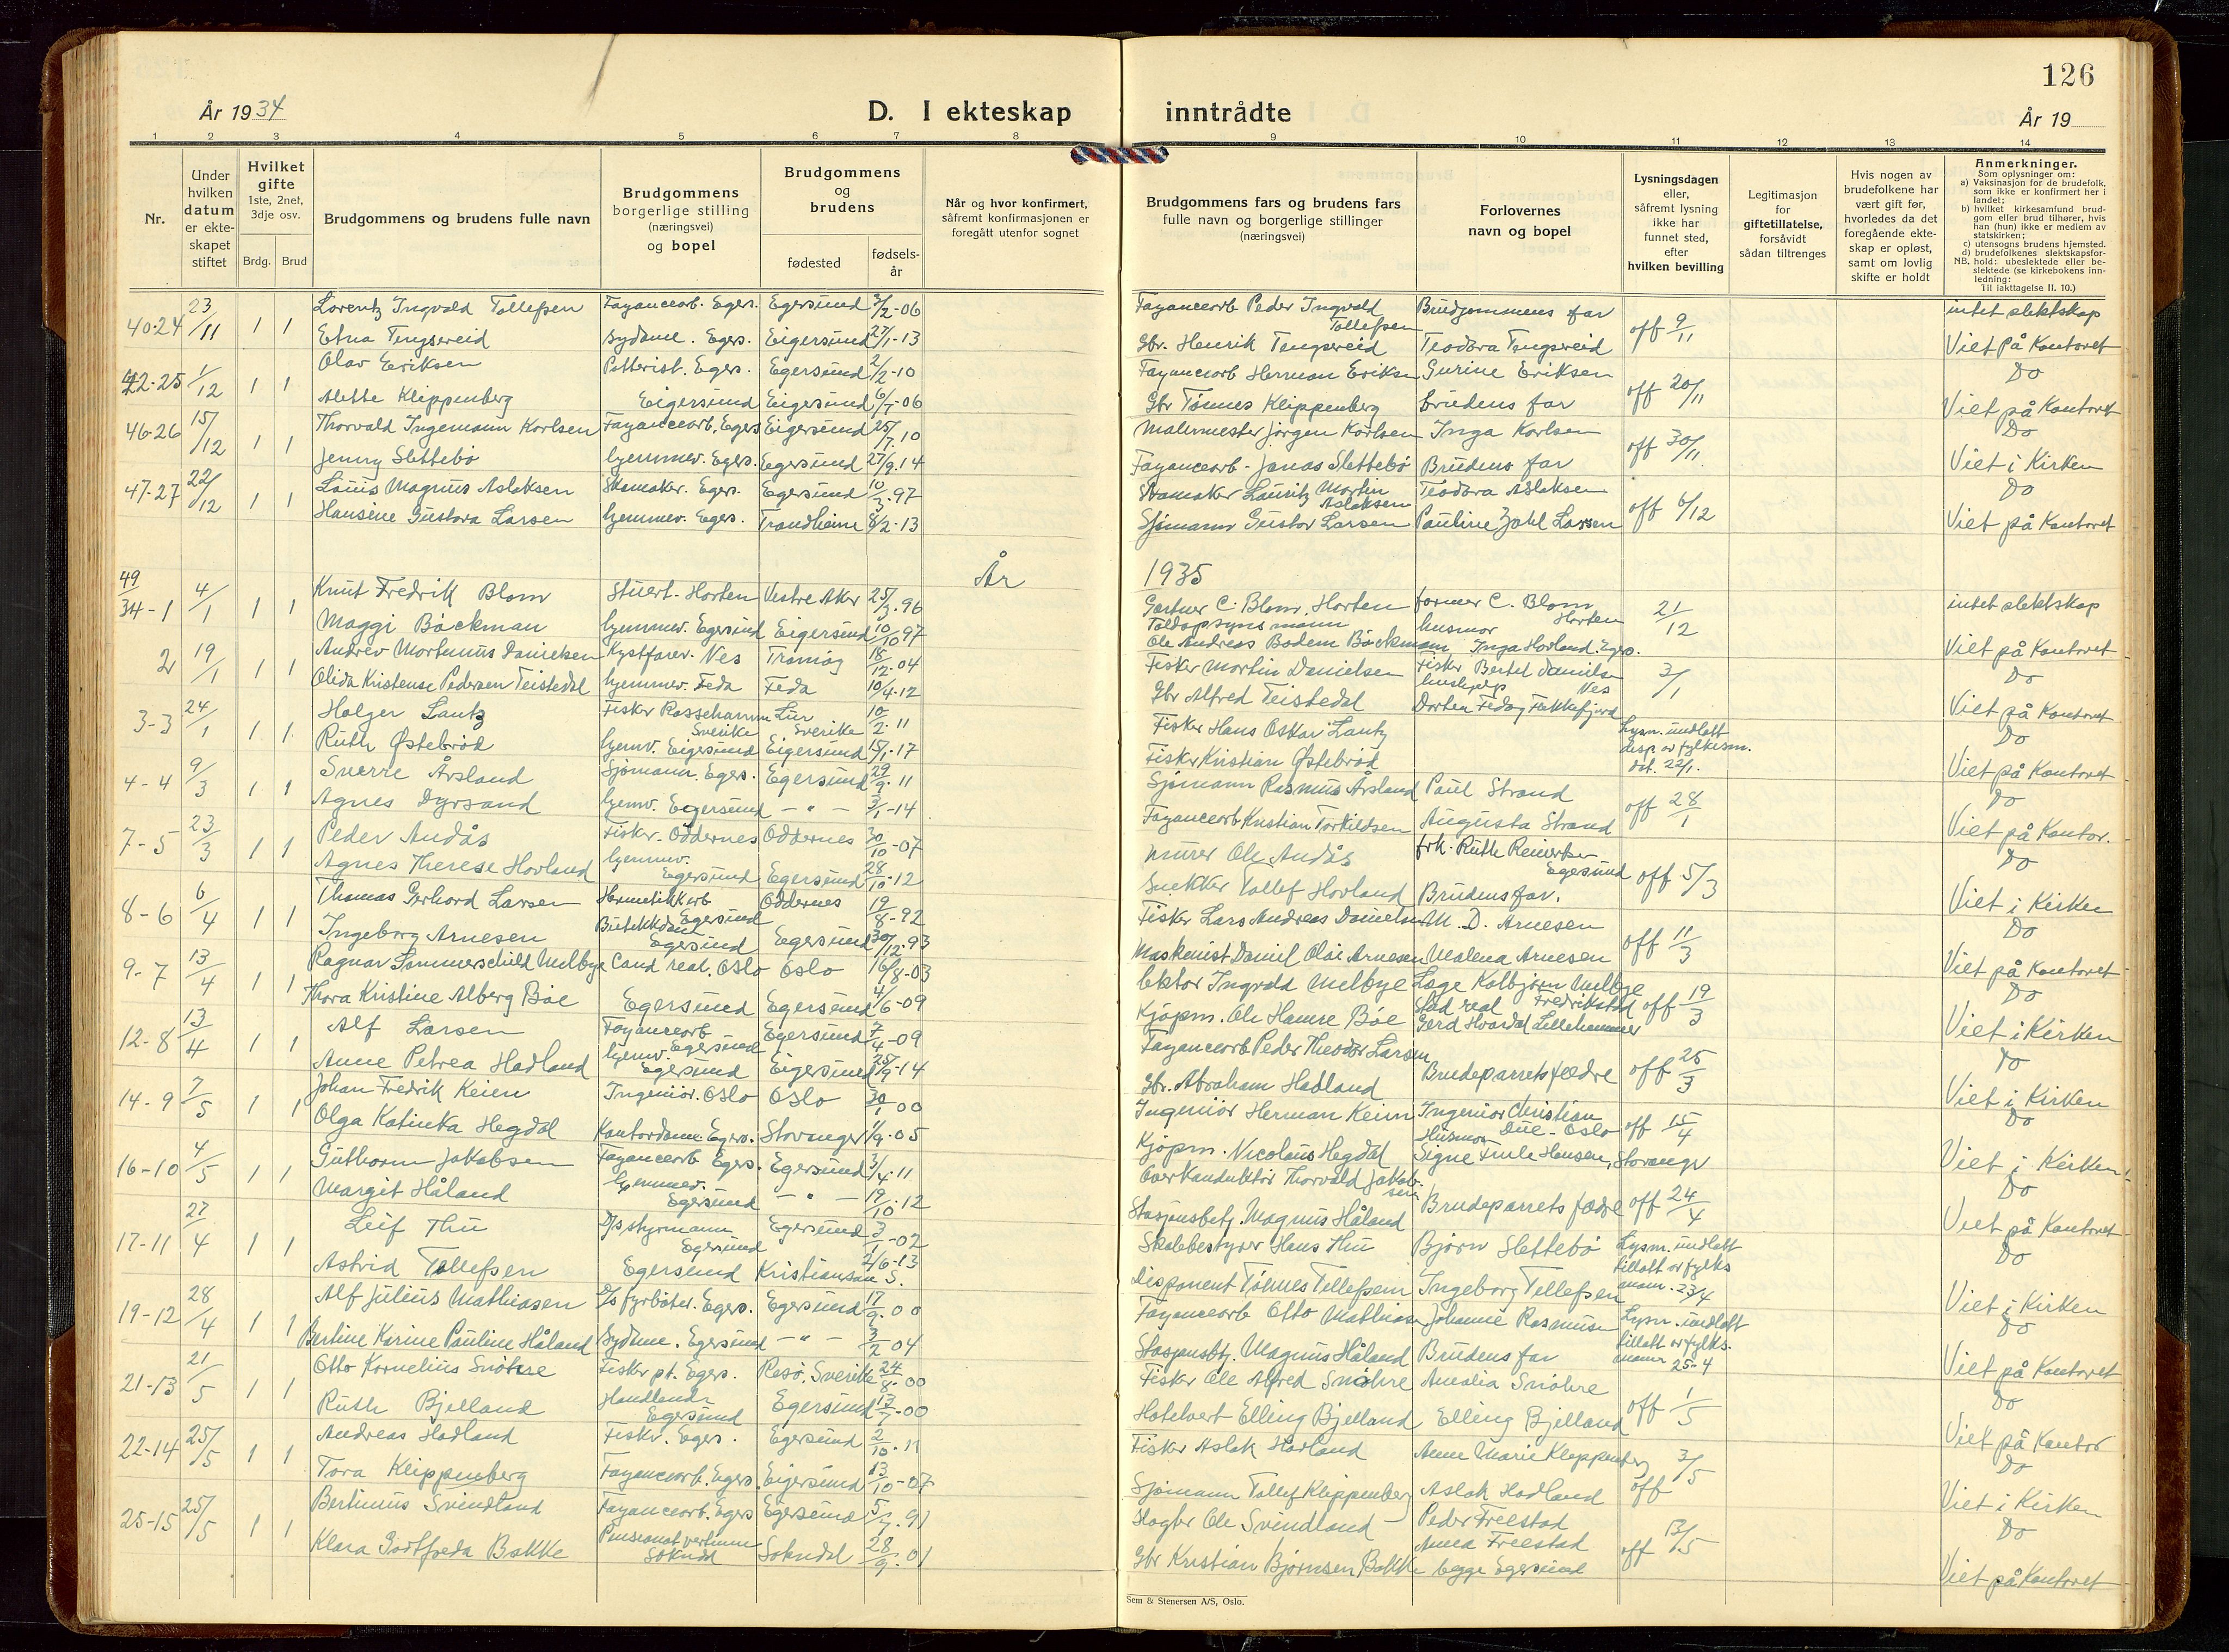 126
År 1934
D. I ekteskap
inntrådte
År 19
1 2 3 4 5 6 7 8 9 10 11 12 13 14
Nr.
Under hvilken datum er ekteskapet stiftet
Hvilket gifte 1ste, 2net, 3dje osv.
Brdg. Brud
Brudgommens og brudens fulle navn
Brudgommens borgerlige stilling (næringsvei) og bopel
Brudgommens og brudens
fødested
fødsels-år
Når og hvor konfirmert, såfremt konfirmasjonen er foregått utenfor sognet
Brudgommens fars og brudens fars fulle navn og borgerlige stillinger (næringsvei)
Forlovernes navn og bopel
Lysningsdagen eller, såfremt lysning ikke har funnet sted, efter hvilken bevilling
Legitimasjon for giftetillatelse, forsåvidt sådan tiltrenges
Hvis nogen av brudefolkene har vært gift før, hvorledes da det foregående ekteskap er opløst, samt om lovlig skifte er holdt
Anmerkninger.
Som oplysninger om:
a) Vaksinasjon for de brudefolk, som ikke er konfirmert her i landet;
b) hvilket kirkesamfund brudgom eller brud tilhører, hvis han (hun) ikke er medlem av statskirken;
c) utensogns brudens hjemsted.
d) brudefolkenes slektskapsforhold: ubeslektede eller beslektede (se kirkebokens innledning:
NB.
Til iakttagelse II. 10.)
40-24 23/11 1 1 Lorentz Ingvald Tollefsen Fayancearb. Egers. Egersund 3/2-06 Fayancearb Peder Ingvald Tollefsen Brudgommens far off 9/11 intet slektskap
Etna Tengsereid Sydame. Egers. Eigersund 27/1-13 Gbr. Henrik Tengsereid Teodora Tengsereid Viet på Kontoret
42-25 1/12 1 1 Olav Eriksen Potterist. Egers. Egersund 2/2-10 Fayancearb Herman Eriksen Gurine Eriksen off 20/11 Do
Alette Klippenberg Eigersund Eigersund 6/7-06 Gbr Tønnes Klippenberg brudens far Viet på Kontoret
46-26 15/12 1 1 Thorvald Ingemann Karlsen Fayancearb. Egers Eigersund 25/7.10 Malermester Jørgen Karlsen Inga Karlsen off 30/11 Do
Jenny Slettebö hjemmev. Egers. Egersund 27/9.14 Fayancearb - Jonas Slettebö Brudens far Viet i Kirken
47-27 22/12 1 1 Louis Magnus Aslaksen Skomaker. Egers. Egersund 10/3.97 Skomaker Lauritz Martin Aslaksen Teodora Aslaksen off 6/12 Do
Hansine Gustava Larsen hjemmev. Egers. Trondheim 8/2-13 Sjømann Gustav Larsen Pauline Zahl Larsen Viet på Kontoret
År 1935
49
34-1 4/1 1 1 Knut Fredrik Blom Stuert-Horten Vestre Aker 25/3.96 Gartner C. Blom. Horten C. Blom Horten 21/12 intet slektskap
Maggi Bäckman hjemmev. Egersund Eigersund 10/10 97 Toldopsynsmann Ole Andreas Bodem Bäckmann husmor Inga Hovland. Egers. Viet på Kontoret
2 19/1 1 1 Andrev Martinius Danielsen Kystfarer. Ves Tromøy 18/12-04 Fisker Martin Danielsen Fisker Bertel Danielsen Ves 3/1 Do
Olida Kristense Pedersen Teistedal hjemmev. Feda Feda 10/4.12 Gbr Alfred Teistedal hushjelp Dortea Fedog Flekkefjord Viet på Kontoret
3-3 24/1 1 1 Holger Lantz Fisker Rossehamn Sverike Lur Sverike 10/2-11 Fisker Hans Oskar Lantz Lysn. undlatt disp. av fylkesm. dat. 22/1. Do
Ruth Østebröd hjemv. Eigersund Eigersund 15/1-17 Fisker Kristian Østebröd Viet på Kontoret
4-4 9/3 1 1 Sverre Årsland Sjømann. Egers. Egersund 29/9.11 Sjømann Rasmus Årsland Paul Strand off 28/1 Do
Agnes Dyrsand hjemv. Egersund - " - 3/1-14 Fayancearb Kristian Torkildsen Augusta Strand Viet på Kontor.
7-5 23/3 1 1 Peder Andås Fisker. Oddernes Oddernes 30/10-07 Murer Ole Andås frk. Ruth Reinertsen Egersund off 5/3 Do
Agnes Therese Hovland hjemmev. Egersund Egersund 28/10-12 Snekker Tollef Hovland Brudens far. Viet i Kirken
8-6 6/4 1 1 Thomas Gerhard Larsen Hermetikkarb Egersund Oddernes 19/8-92 Fisker Lars Andreas Danielsen M. D. Arnesen off 11/3 Do
Ingeborg Arnesen Butikkdame Egersund Egersund 30/12.93 Maskinist Daniel Olai Arnesen Malena Arnesen Viet på Kontoret
9-7 13/4 1 1 Ragnar Sommerschild Melbye Cand real. Oslo Oslo 16/8-03 lektor Ingvald Melbye Lage Kolbjørn Melbye Fredrikstad off 19/3 Do
Thora Kristine Alberg Bøe Egersund Egersund 4/6-09 Kjøpm. Ole Hamre Bøe Stud real Gerd Hvardal Lillehammer Viet i Kirken
12-8 13/4 1 1 Alf Larsen Fayancearb Egersund Egersund 7/4-09 Fayancearb Peder Theodor Larsen Brudeparrets fædre off 25/3 Do
Anne Petrea Hadland hjemv. Egersund Eigersund 25/9-14 Gbr. Abraham Hadland Viet i Kirken
14-9 7/5 1 1 Johan Fredrik Keien Ingeniör. Oslo Oslo 30/1 00 Ingeniör Herman Keien Ingeniör Christian Due-Oslo off 15/4 Do
Olga Katinka Hegdal Kontordame Egers. Stavanger 1/9-05 Kjøpm. Nicolaus Hegdal Husmor Signe Hansen, Stavanger Viet i Kirken
16-10 4/5 1 1 Guthorm Jakobsen Fayancearb Egers. Egersund 3/4.11 Overkonduktör Thorvald Jakobsen Brudeparrets fædre off 24/4 Do
Margit Håland hjemmev. Egersund - " - 19/10.12 Stasjonsbetj. Magnus Håland Viet på Kontoret
17-11 27/4 1 1 Leif Thu D/s styrmann Egersund Egersund 3/1-02 Skolebestyrer Hans Thu Bjørn Slettebö Lysn. undlatt tillatt av fylksmann. 23/4 Do
Astrid Tollefsen Egersund Kristiansan S. 2/6-13 Disponent Tönnes Tollefsen Ingeborg Tollefsen Viet i Kirken
19-12 28/4 1 1 Alf Julius Mathiasen D/s fyrböter. Egers. Egersund 17/2-00 Fayancearb Otto Mathiasen Johanne Rasmusen Lysn. undlatt tillatt av fylks. 25-4 Do
Bertine Karine Pauline Håland Sydame. Egersund - " - 3/2 04 Stasjonsbtj. Magnus Håland Brudens far Viet på Kontoret
21-13 21/5 1 1 Otto Kornelius Snöhre Fisker pt. Egers. Resö. Sverike 24/8-00 Fisker Ole Alfred Snöhre Amalia Snöhre off 1/5 Do
Ruth Bjelland Handlende Egersund Egersund 13/7-00 Hotelvert Elling Bjelland Elling Bjelland Viet på Kontor
22-14 25/5 1 1 Andreas Hadland Fisker. Egers. Egersund 2/10-11 Fisker Aslak Hadland Anne Marie Kleppenberg off 3/5 Do
Tora Klippenberg Fayancearb. Egers. Eigersund 13/10-07 Sjømann Tollef Klippenberg Aslak Hadland Viet i Kirken
25-15 25/5 1 1 Bertinius Svindland Fayancearb. Egers Egersund 5/9.91 Ole Svindland Peder Freestad off 13/5 Do
Klara Godtfreda Bakke Pensionat vertinne Sokndal Sokndal 28/9-01 Gbr Kristian Bjørnsen Bakke Anna Freestad begge Egersund Viet på Kontoret
Sem & Stenersen A/S, Oslo.